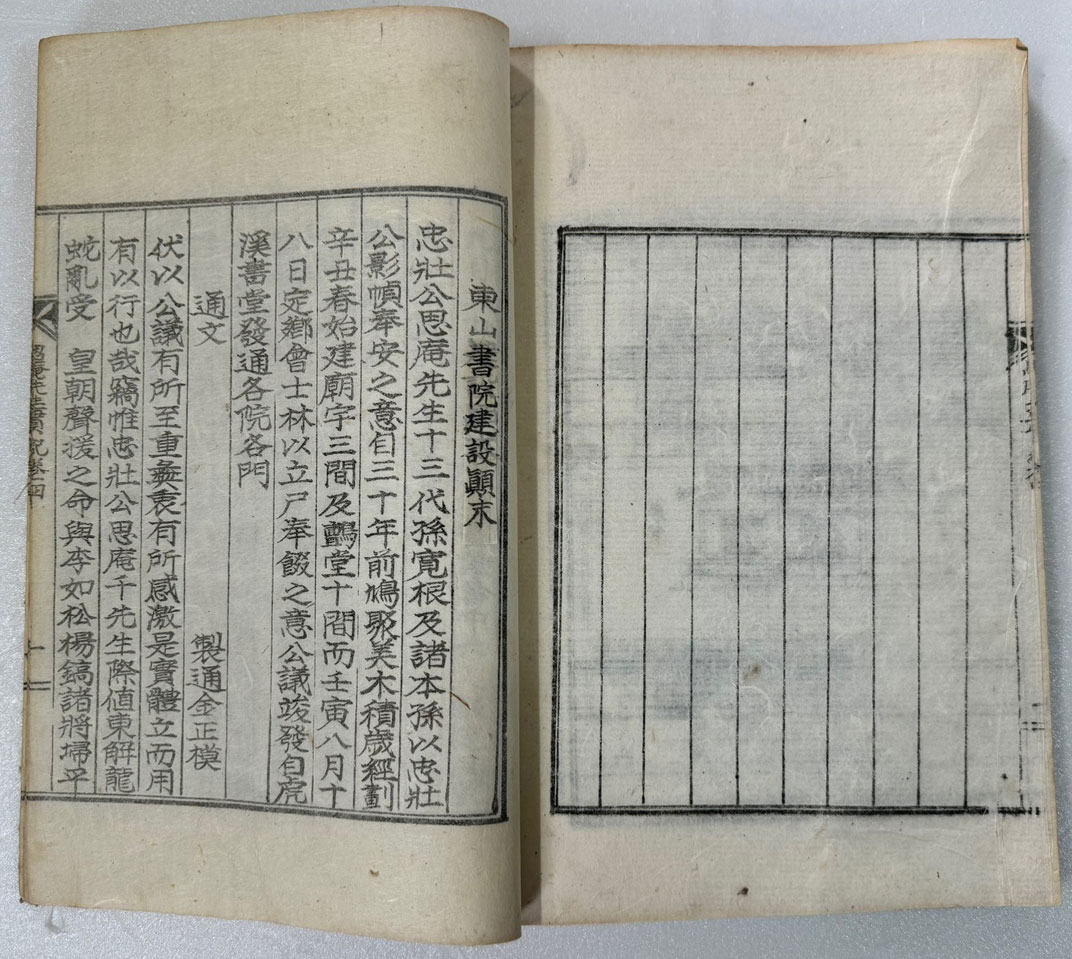 東山書院建設顛末
忠壯公思庵先生十三代孫寬根及諸本孫以忠壯
公影幀奉安之意自三十年前鳩聚美木積歲經劃
辛丑春始建廟宇三間及講堂十間而壬寅八月十
八日定鄉會士林以立尸奉餟之意公議竣發自虎
溪書堂發通各院各門
通文 製通金正模
伏以公議有所至重彝衷有所感激是實體立而用
有以行也哉竊惟忠壯公思庵千先生際値東觧龍
蛇亂受 皇朝聲援之命與李如松楊鎬諸將埽平
思庵先生實記卷二四